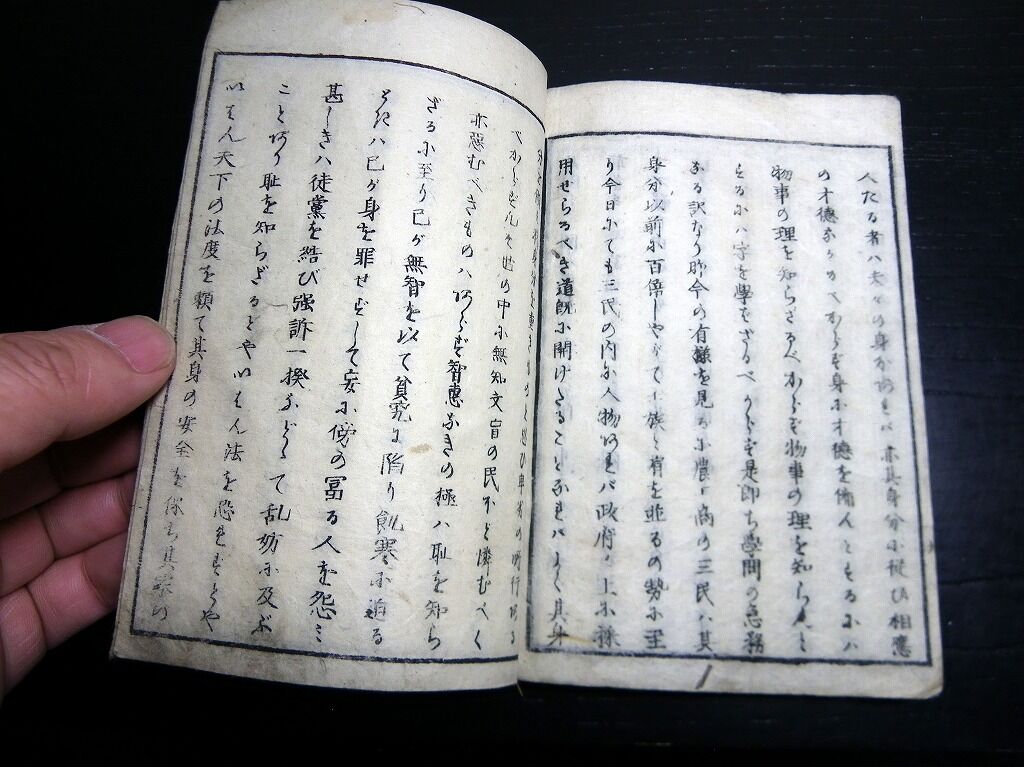 人たる者ハ夫々の身分あれバ亦其身分に従ひ相應
の才徳なかるべからず身に才徳を備んとするにハ
物事の理を知らざるべからず物事の理を知らんと
するにハ字を學ばざるべからず是即ち學問の急務
なる訳なり昨今の有様を見るに農工商の三民ハ其
身分以前に百倍しやがて士族と肩を並るの勢に至
り今日にても三民の内に人物あれバ政府の上に採
用せらるべき道既に開けたることなれバよく其身
を重きものと思ひ卑劣の所行ある
べからず凡そ世の中に無知文盲の民ほど憐むべく
亦惡むべきものハあらず智恵なきの極ハ恥を知ら
ざるに至り己が無智を以て貧究に陥り飢寒に迫る
ときハ己が身を罪せずして妄に傍の冨る人を怨ミ
甚しきハ徒黨を結び強訴一揆などゝて乱妨に及ぶ
ことあり恥を知らざるとやいはん法を恐れずとや
いはん天下の法度を頼て其身の安全を保ち其家の